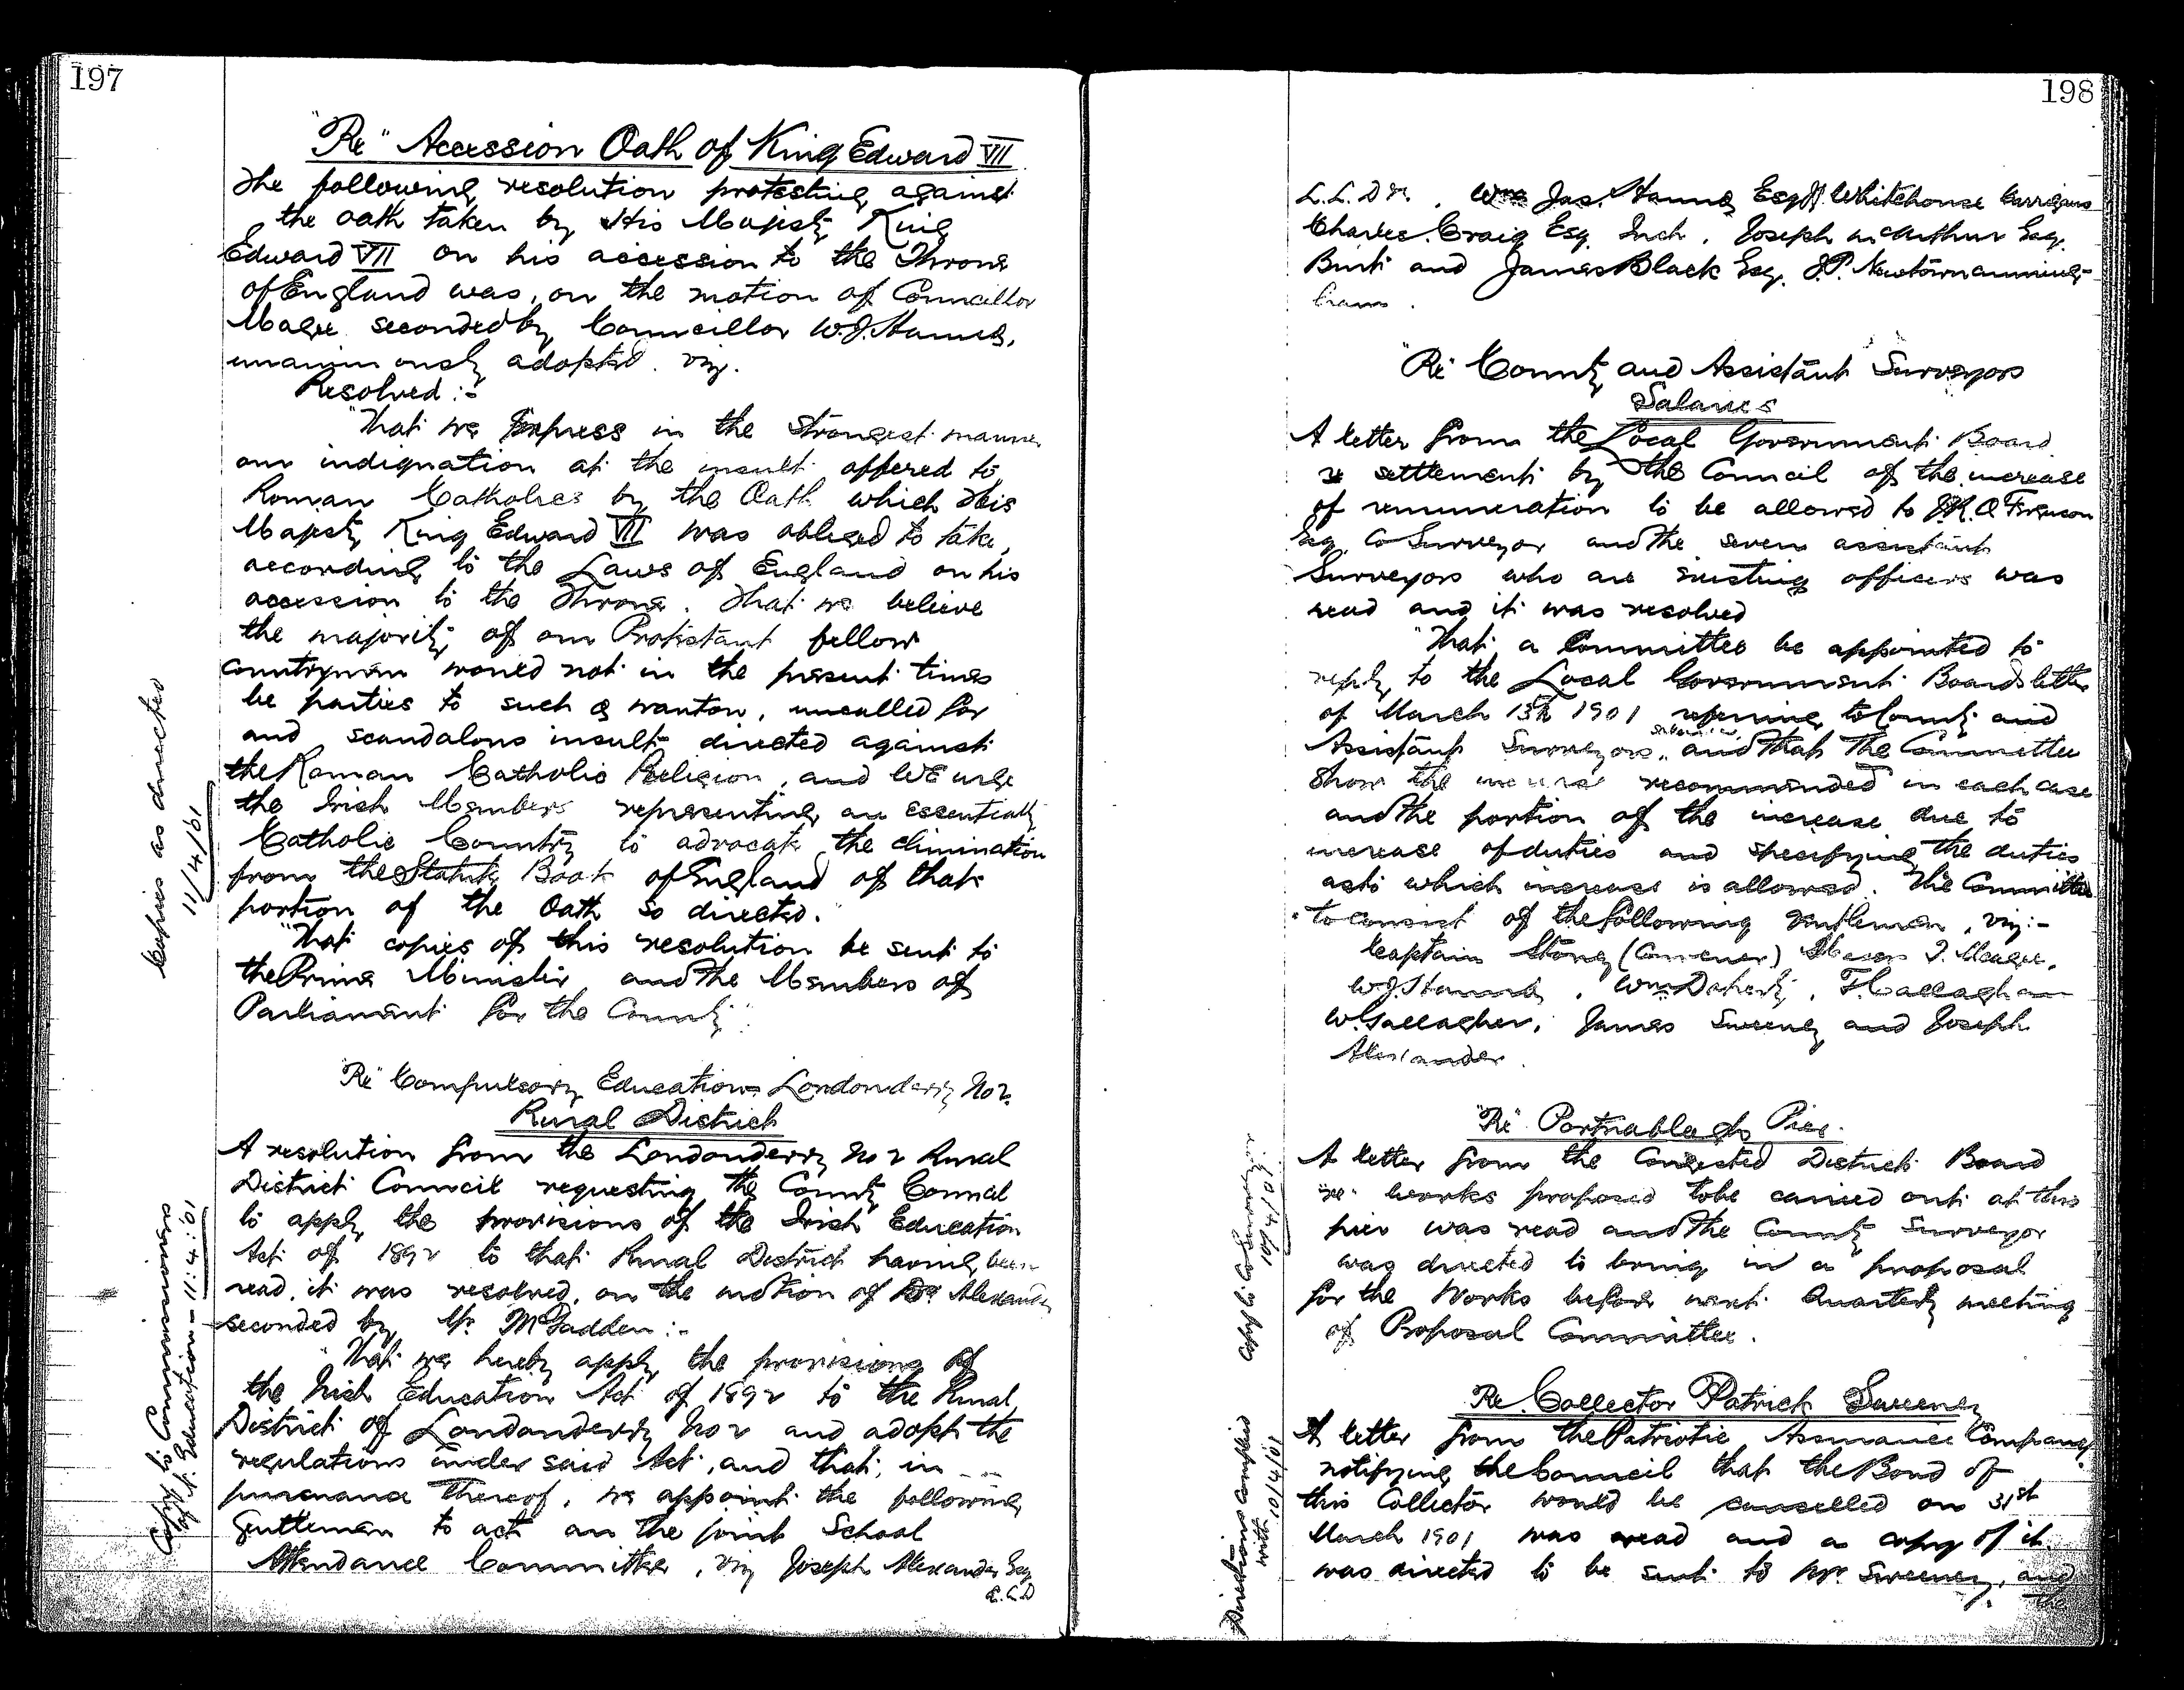 197
"Re" Accession Oath of King Edward VII
The following resolution protesting against
the oath taken by His Majesty King
Edward VII on his accession to the Throne
of England was, on the motion of Councillor
Magee seconded by Councillor W.J. Hanna,
unanimously adopted. viz.
Resolved :-
"That we Express in the strongest manner
our indignation at the insult offered to
Roman Catholics by the Oath which His
Majesty King Edward VII was obliged to take,
according to the Laws of England on his
accession to the Throne. That we believe
the majority of our Protestant fellow
countrymen would not in the present times
be parties to such a wanton, uncalled for
and scandalous insult directed against
the Roman Catholic Religion, and WE urge
the Irish Members representing an essentially
Catholic Country to advocate the elimination
from the Statute Book of England of that
portion of the Oath so directed."
"That copies of this resolution be sent to
the Prime Minister and the Members of
Parliament for the County".
Copies as directed
11/4/01
"Re" Compulsory Education Londonderry No 2.
Rural District
A resolution from the Londonderry No 2 Rural
District Council requesting the County Council
to apply the provisions of the Irish Education
Act of 1892 to that Rural District having been
read, it was resolved, on the motion of Alexander
seconded by Mr. McFadden :-
"That we hereby apply the provisions of
the Irish Education Act of 1892 to the Rural
District of Londonderry No 2 and adopt the
regulations under said Act, and that, in
pursuance thereof, we appoint the following
Gentlemen to act on the joint School
Attendance Committee, viz Joseph Alexander Esq
Copy to Commissioners
of N. Education - 11:4:'01
198
Jas. Hanna Esq Whitehouse Carrigans
Charles Craig Esq. Inch, Joseph McArthur Esq.
Burt and James Black Esq. J.P. Newtowncunning-
ham.
"Re" County and Assistant Surveyors
Salaries
A letter from the Local Government Board
re settlement by the Council of the increase
of remuneration to be allowed to Ferguson
Esq. Co Surveyor and the seven assistant
Surveyors who are existing officers was
read and it was resolved
"That a Committee be appointed to
reply to the Local Government Boards letter
of March 13th 1901 referring to County and
Assistant Surveyors salaries, and that the Committee
show the increase recommended in each case
and the portion of the increase due to
increase of duties and specifying the duties
as to which increase is allowed. The Committee
to consist of the following Gentlemen, viz:-
Captain Stoney (Convener) Messrs Magee,
W.J. Hanna, Wm Doherty, F. Callaghan
W. Gallagher, James Sweeney and Joseph
Alexander.
"Re" Portnablagh Pier.
A letter from the Congested Districts Board
re works proposed to be carried out at this
pier was read and the County Surveyor
was directed to bring in a proposal
for the Works before next Quarterly meeting
of Proposal Committee.
Copy to Co Surveyor
10/4/01
Re. Collector Patrick Sweeney
A letter from the Patriotic Assurance Company
notifying the Council that the Bond of
this Collector would be cancelled on 31st
March 1901 was read and a copy of it
was directed to be sent to Mr. Sweeney, and
the
Directions complied
with, 10/4/01